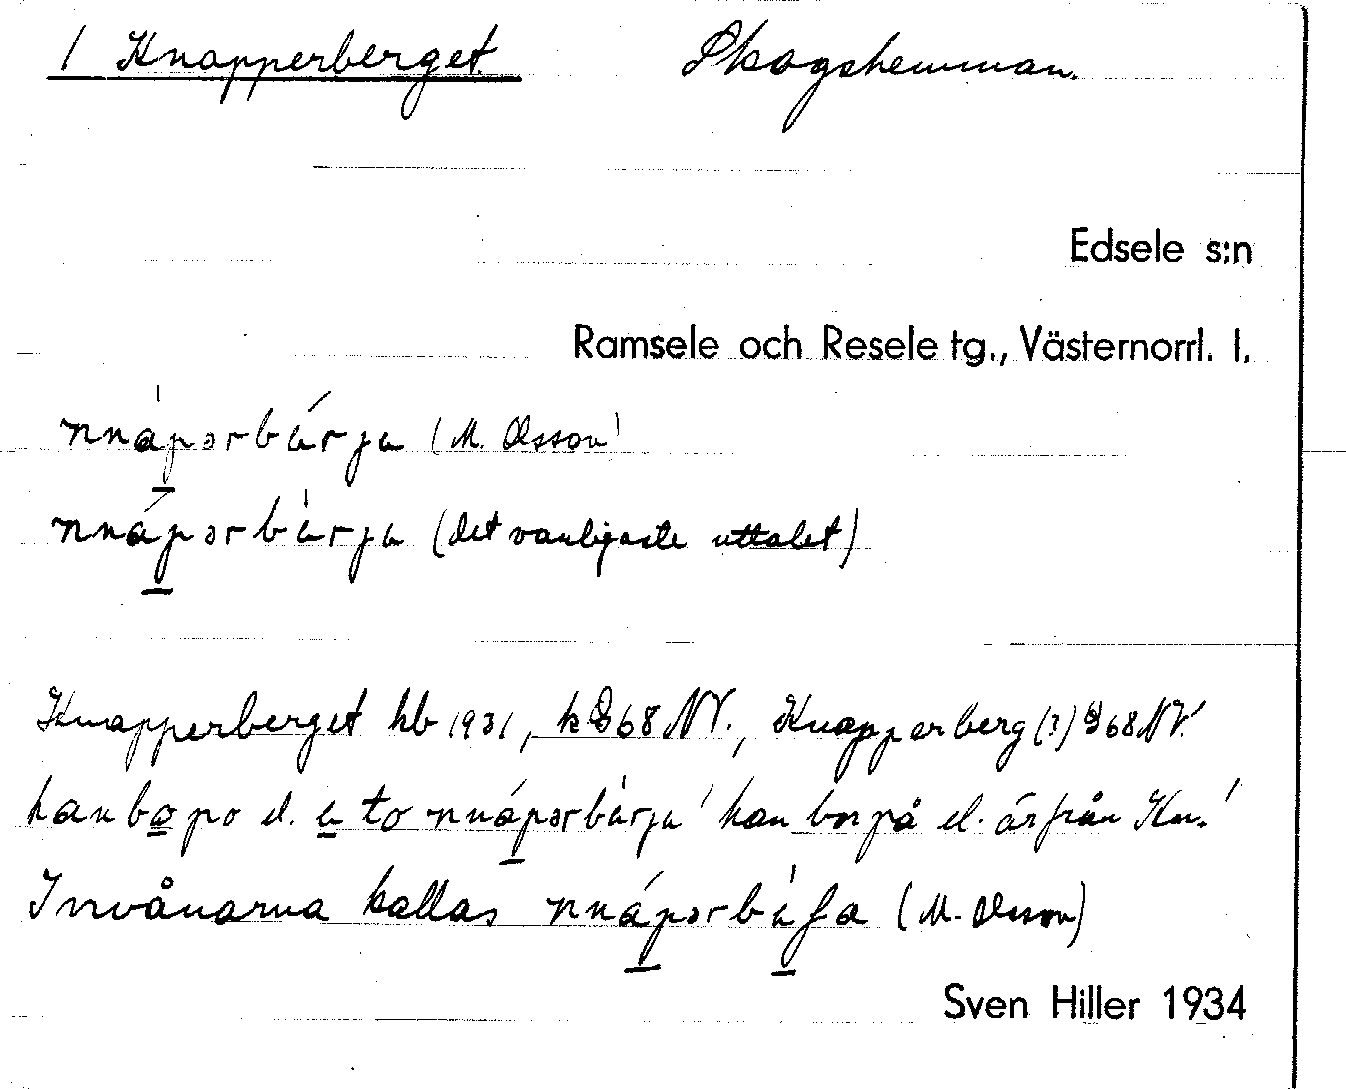 1 Knapperberget. Skogshemman.
Edsele s:n
Ramsele och Resele tg., Västernorrl. l.
nná̱pərbárja (M. Olsson)
nná̱pərbàrja (det vanligaste uttalet)
Knapperberget hb 1931, k S68 NV., Knapperberg (3) S68 NV.
han bo̱ po el. a̱ to nná̱pərbàrja 'han bor på el. är från Kn.'
Invånarna kallas (M. Olsson)
Sven Hiller 1934